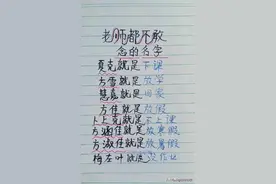 老师都不敢
念的名字
夏克就是下课
方雪就是放学
慧嘉就是回家
方佳就是放假
卜上克就是不上课
方涵佳就是放寒假
方淑佳就是放暑假
梅左叶就是没作业